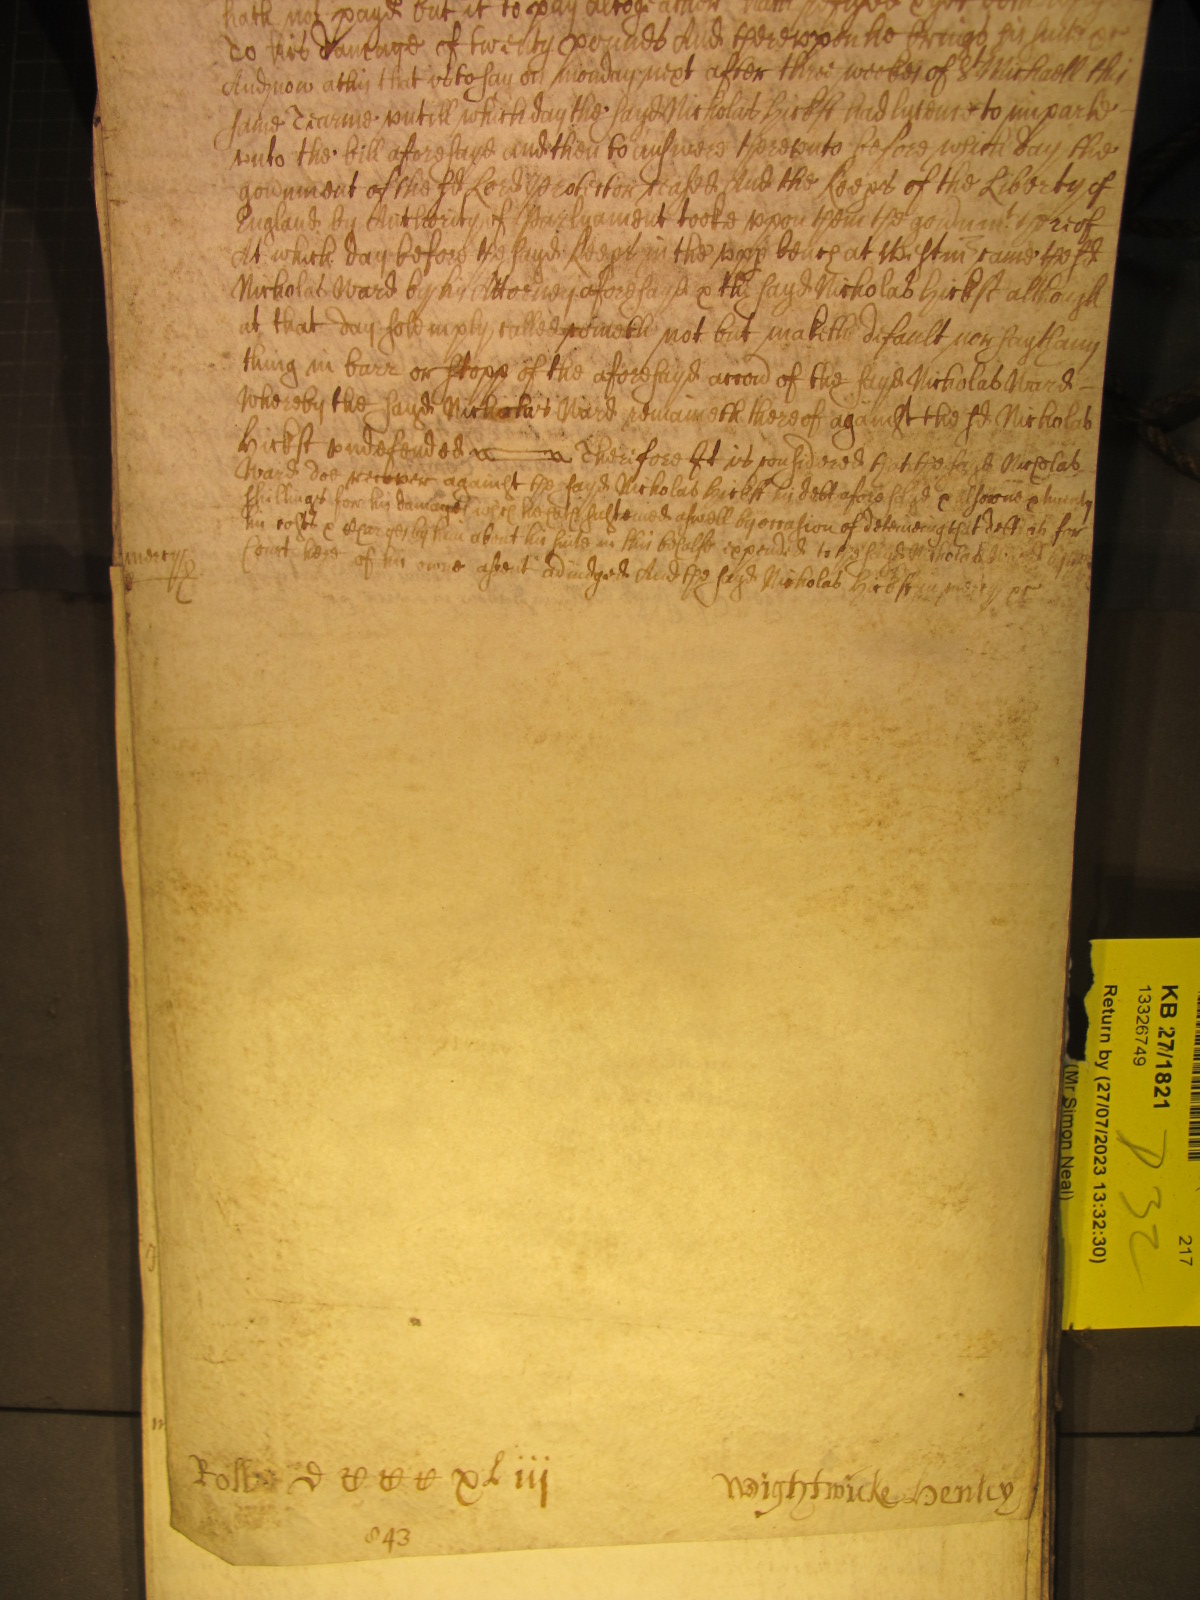 hath not payd but it to pay altogeather hath
To his damage of twenty pounds And thereuppon he brings his suite &c
And now at this that is to say on monday next after three weekes of St Michaell this
same Tearme untill which day the sayd Nicholas Hickst had lycence to imparle
unto the bill aforesayd and then to answere thereunto before which day the
govnment of the sd Lord Protector ceased And the Keeps of the Liberty of
England by Authority of Parlyament tooke uppon them the govnmt thereof
At which day before the sayd Keeps in the upp bench at Westm came the sd
Nicholas Ward by his Attorney aforesayd & the sayd Nicholas Hickst although
at that day solemply called cometh not but maketh default nor sayth any
thing in barr or stopp of the aforesayd accon of the sayd Nicholas Ward
Whereby the sayd Nicholas Ward remaineth thereof against the sd Nicholas
Hickst undefended Therefore It is considered that the sayd Nicholas
Ward doe recover against the sayd Nicholas Hickst his debt aforesayd & alsoe one & twenty
shillings for his damages which he hath susteined aswell by occasion of deteineing that debt as for
his costs & charges by him about his suite in this behalfe expended to the sayd Nicholas Ward by the
mercy
Court here of his owne assent adiudged And the sayd Nicholas Hickst in mercy &c
Roll D CCC XL iii
Wightwicke Henley
843
KB 27/1821
13326749
Return by (27/07/2023 13:32:30)
(Mr Simon Neal)
217
D 32